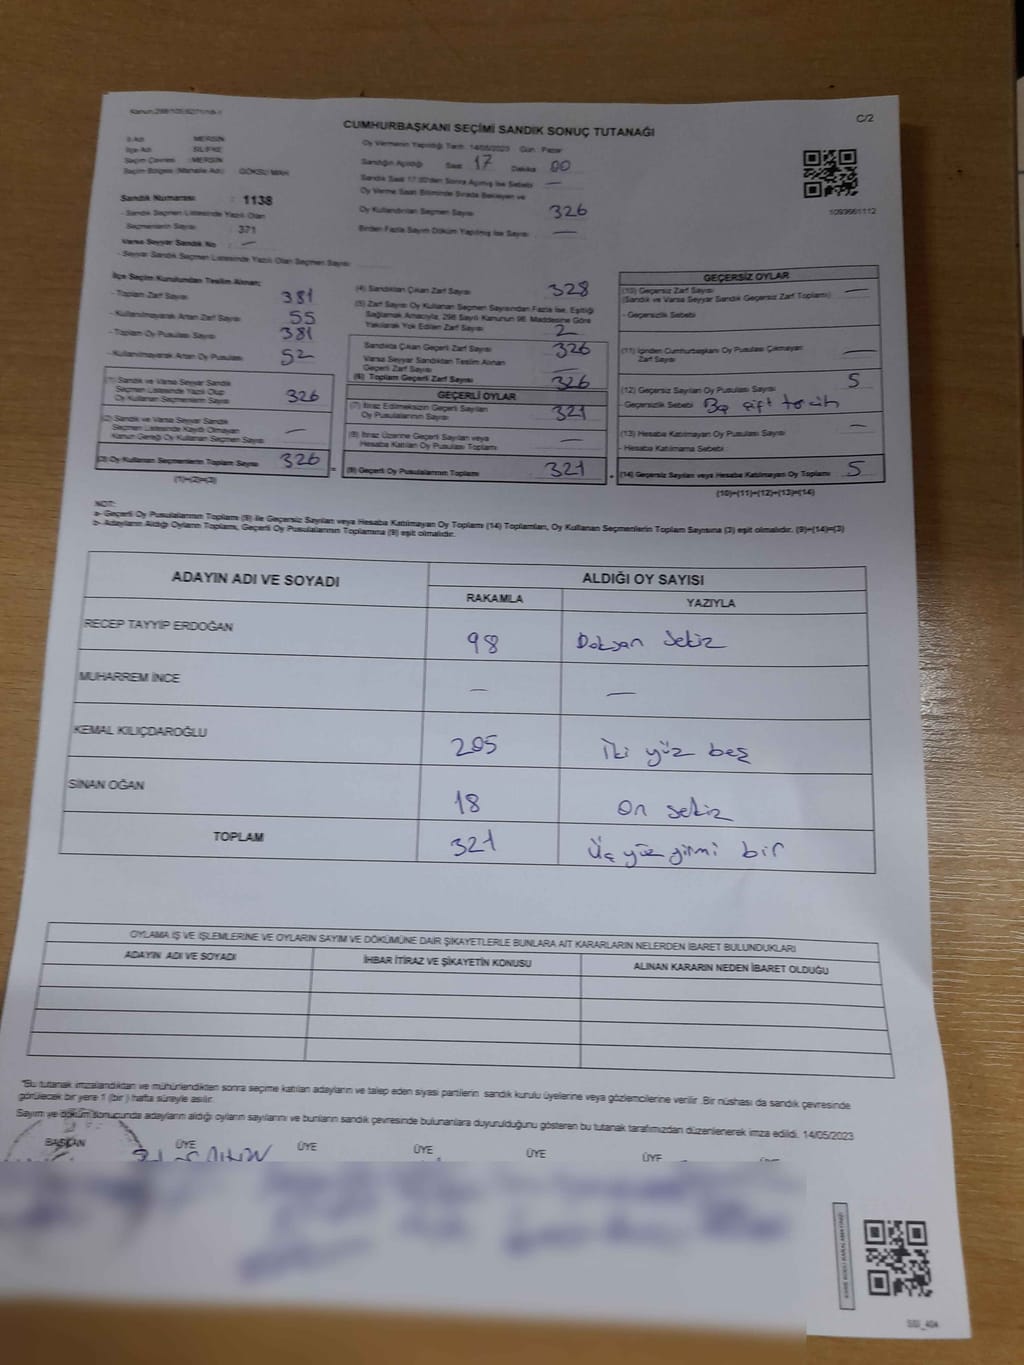 C/2
CUMHURBAŞKANI SEÇİMİ SANDIK SONUÇ TUTANAĞI
İl Adı : MERSİN
İlçe Adı : SİLİFKE
Seçim Çevresi : MERSİN
Seçim Bölgesi (Mahalle Adı) : GÖKSU MAH
Sandık Numarası : 1138
- Sandık Seçmen Listesinde Yazılı Olan
Seçmenlerin Sayısı : 371
Varsa Seyyar Sandık No : —
- Seyyar Sandık Seçmen Listesinde Yazılı Olan Seçmen Sayısı
Oy Vermenin Yapıldığı Tarih: 14/05/2023 Gün : Pazar
Sandığın Açıldığı Saat 17 Dakika 00
Sandık Saat 17:00'den Sonra Açılmış İse Sebebi —
Oy Verme Saati Bitiminde Sırada Bekleyen ve
Oy Kullandırılan Seçmen Sayısı 326
Birden Fazla Sayım Döküm Yapılmış İse Sayısı —
1093661112
İlçe Seçim Kurulundan Teslim Alınan;
- Toplam Zarf Sayısı 381
- Kullanılmayarak Artan Zarf Sayısı 55
- Toplam Oy Pusulası Sayısı 381
- Kullanılmayarak Artan Oy Pusulası 52
(1) Sandık ve Varsa Seyyar Sandık
Seçmen Listesinde Yazılı Olup
Oy Kullanan Seçmenlerin Sayısı 326
(2) Sandık ve Varsa Seyyar Sandık
Seçmen Listesinde Kaydı Olmayan
Kanun Gereği Oy Kullanan Seçmen Sayısı —
(3) Oy Kullanan Seçmenlerin Toplam Sayısı 326
(1)+(2)=(3)
(4) Sandıktan Çıkan Zarf Sayısı 328
(5) Zarf Sayısı Oy Kullanan Seçmen Sayısından Fazla İse, Eşitliği
Sağlamak Amacıyla, 298 Sayılı Kanunun 98. Maddesine Göre
Yakılarak Yok Edilen Zarf Sayısı 2
Sandıkta Çıkan Geçerli Zarf Sayısı 326
Varsa Seyyar Sandıktan Teslim Alınan
Geçerli Zarf Sayısı —
(6) Toplam Geçerli Zarf Sayısı 326
GEÇERLİ OYLAR
(7) İtiraz Edilmeksizin Geçerli Sayılan
Oy Pusulalarının Sayısı 321
(8) İtiraz Üzerine Geçerli Sayılan veya
Hesaba Katılan Oy Pusulası Toplamı —
(9) Geçerli Oy Pusulalarının Toplamı 321
GEÇERSİZ OYLAR
(10) Geçersiz Zarf Sayısı —
(Sandık ve Varsa Seyyar Sandık Geçersiz Zarf Toplamı)
- Geçersizlik Sebebi
(11) İçinden Cumhurbaşkanı Oy Pusulası Çıkmayan
Zarf Sayısı —
(12) Geçersiz Sayılan Oy Pusulası Sayısı 5
- Geçersizlik Sebebi
(13) Hesaba Katılmayan Oy Pusulası Sayısı —
- Hesaba Katılmama Sebebi
(14) Geçersiz Sayılan veya Hesaba Katılmayan Oy Toplamı 5
(10)+(11)+(12)+(13)=(14)
NOT:
a- Geçerli Oy Pusulalarının Toplamı (9) ile Geçersiz Sayılan veya Hesaba Katılmayan Oy Toplamı (14) Toplamları, Oy Kullanan Seçmenlerin Toplam Sayısına (3) eşit olmalıdır. (9)+(14)=(3)
b- Adayların Aldığı Oyların Toplamı, Geçerli Oy Pusulalarının Toplamına (9) eşit olmalıdır.
ADAYIN ADI VE SOYADI
ALDIĞI OY SAYISI
RAKAMLA YAZIYLA
RECEP TAYYİP ERDOĞAN 98 Doksan Sekiz
MUHARREM İNCE — —
KEMAL KILIÇDAROĞLU 205 İki yüz beş
SİNAN OĞAN 18 On sekiz
TOPLAM 321 Üç yüz yirmi bir
OYLAMA İŞ VE İŞLEMLERİNE VE OYLARIN SAYIM VE DÖKÜMÜNE DAİR ŞİKAYETLERLE BUNLARA AİT KARARLARIN NELERDEN İBARET BULUNDUKLARI
ADAYIN ADI VE SOYADI İHBAR İTİRAZ VE ŞİKAYETİN KONUSU ALINAN KARARIN NEDEN İBARET OLDUĞU
"Bu tutanak imzalandıktan ve mühürlendikten sonra seçime katılan adayların ve talep eden siyasi partilerin sandık kurulu üyelerine veya gözlemcilerine verilir. Bir nüshası da sandık çevresinde
görülecek bir yere 1 (bir ) hafta süreyle asılır.
Sayım ve döküm sonucunda adayların aldığı oyların sayılarını ve bunların sandık çevresinde bulunanlara duyurulduğunu gösteren bu tutanak tarafımızdan düzenlenerek imza edildi. 14/05/2023
BAŞKAN ÜYE ÜYE ÜYE ÜYE ÜYE